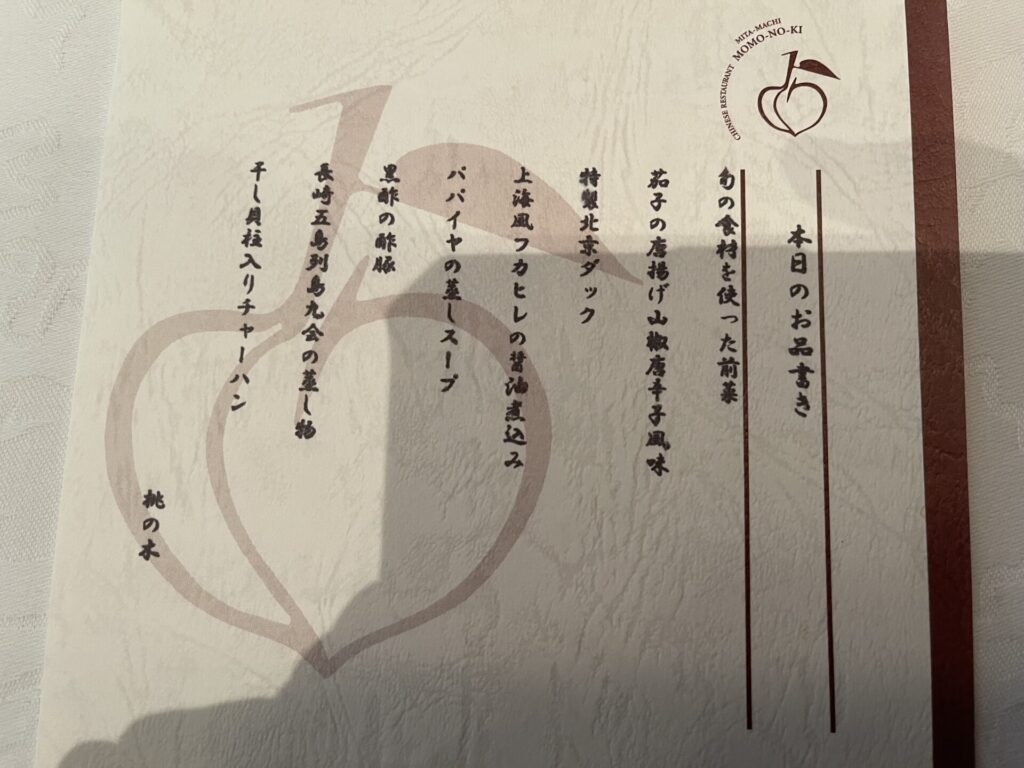 MITA-MACHI
MOMO-NO-KI
CHINESE RESTAURANT
本日のお品書き
旬の食材を使った前菜
茄子の唐揚げ山椒唐辛子風味
特製北京ダック
上海風フカヒレの醤油煮込み
パパイヤの蒸しスープ
黒酢の酢豚
長崎五島列島九会の蒸し物
干し貝柱入りチャーハン
桃の木